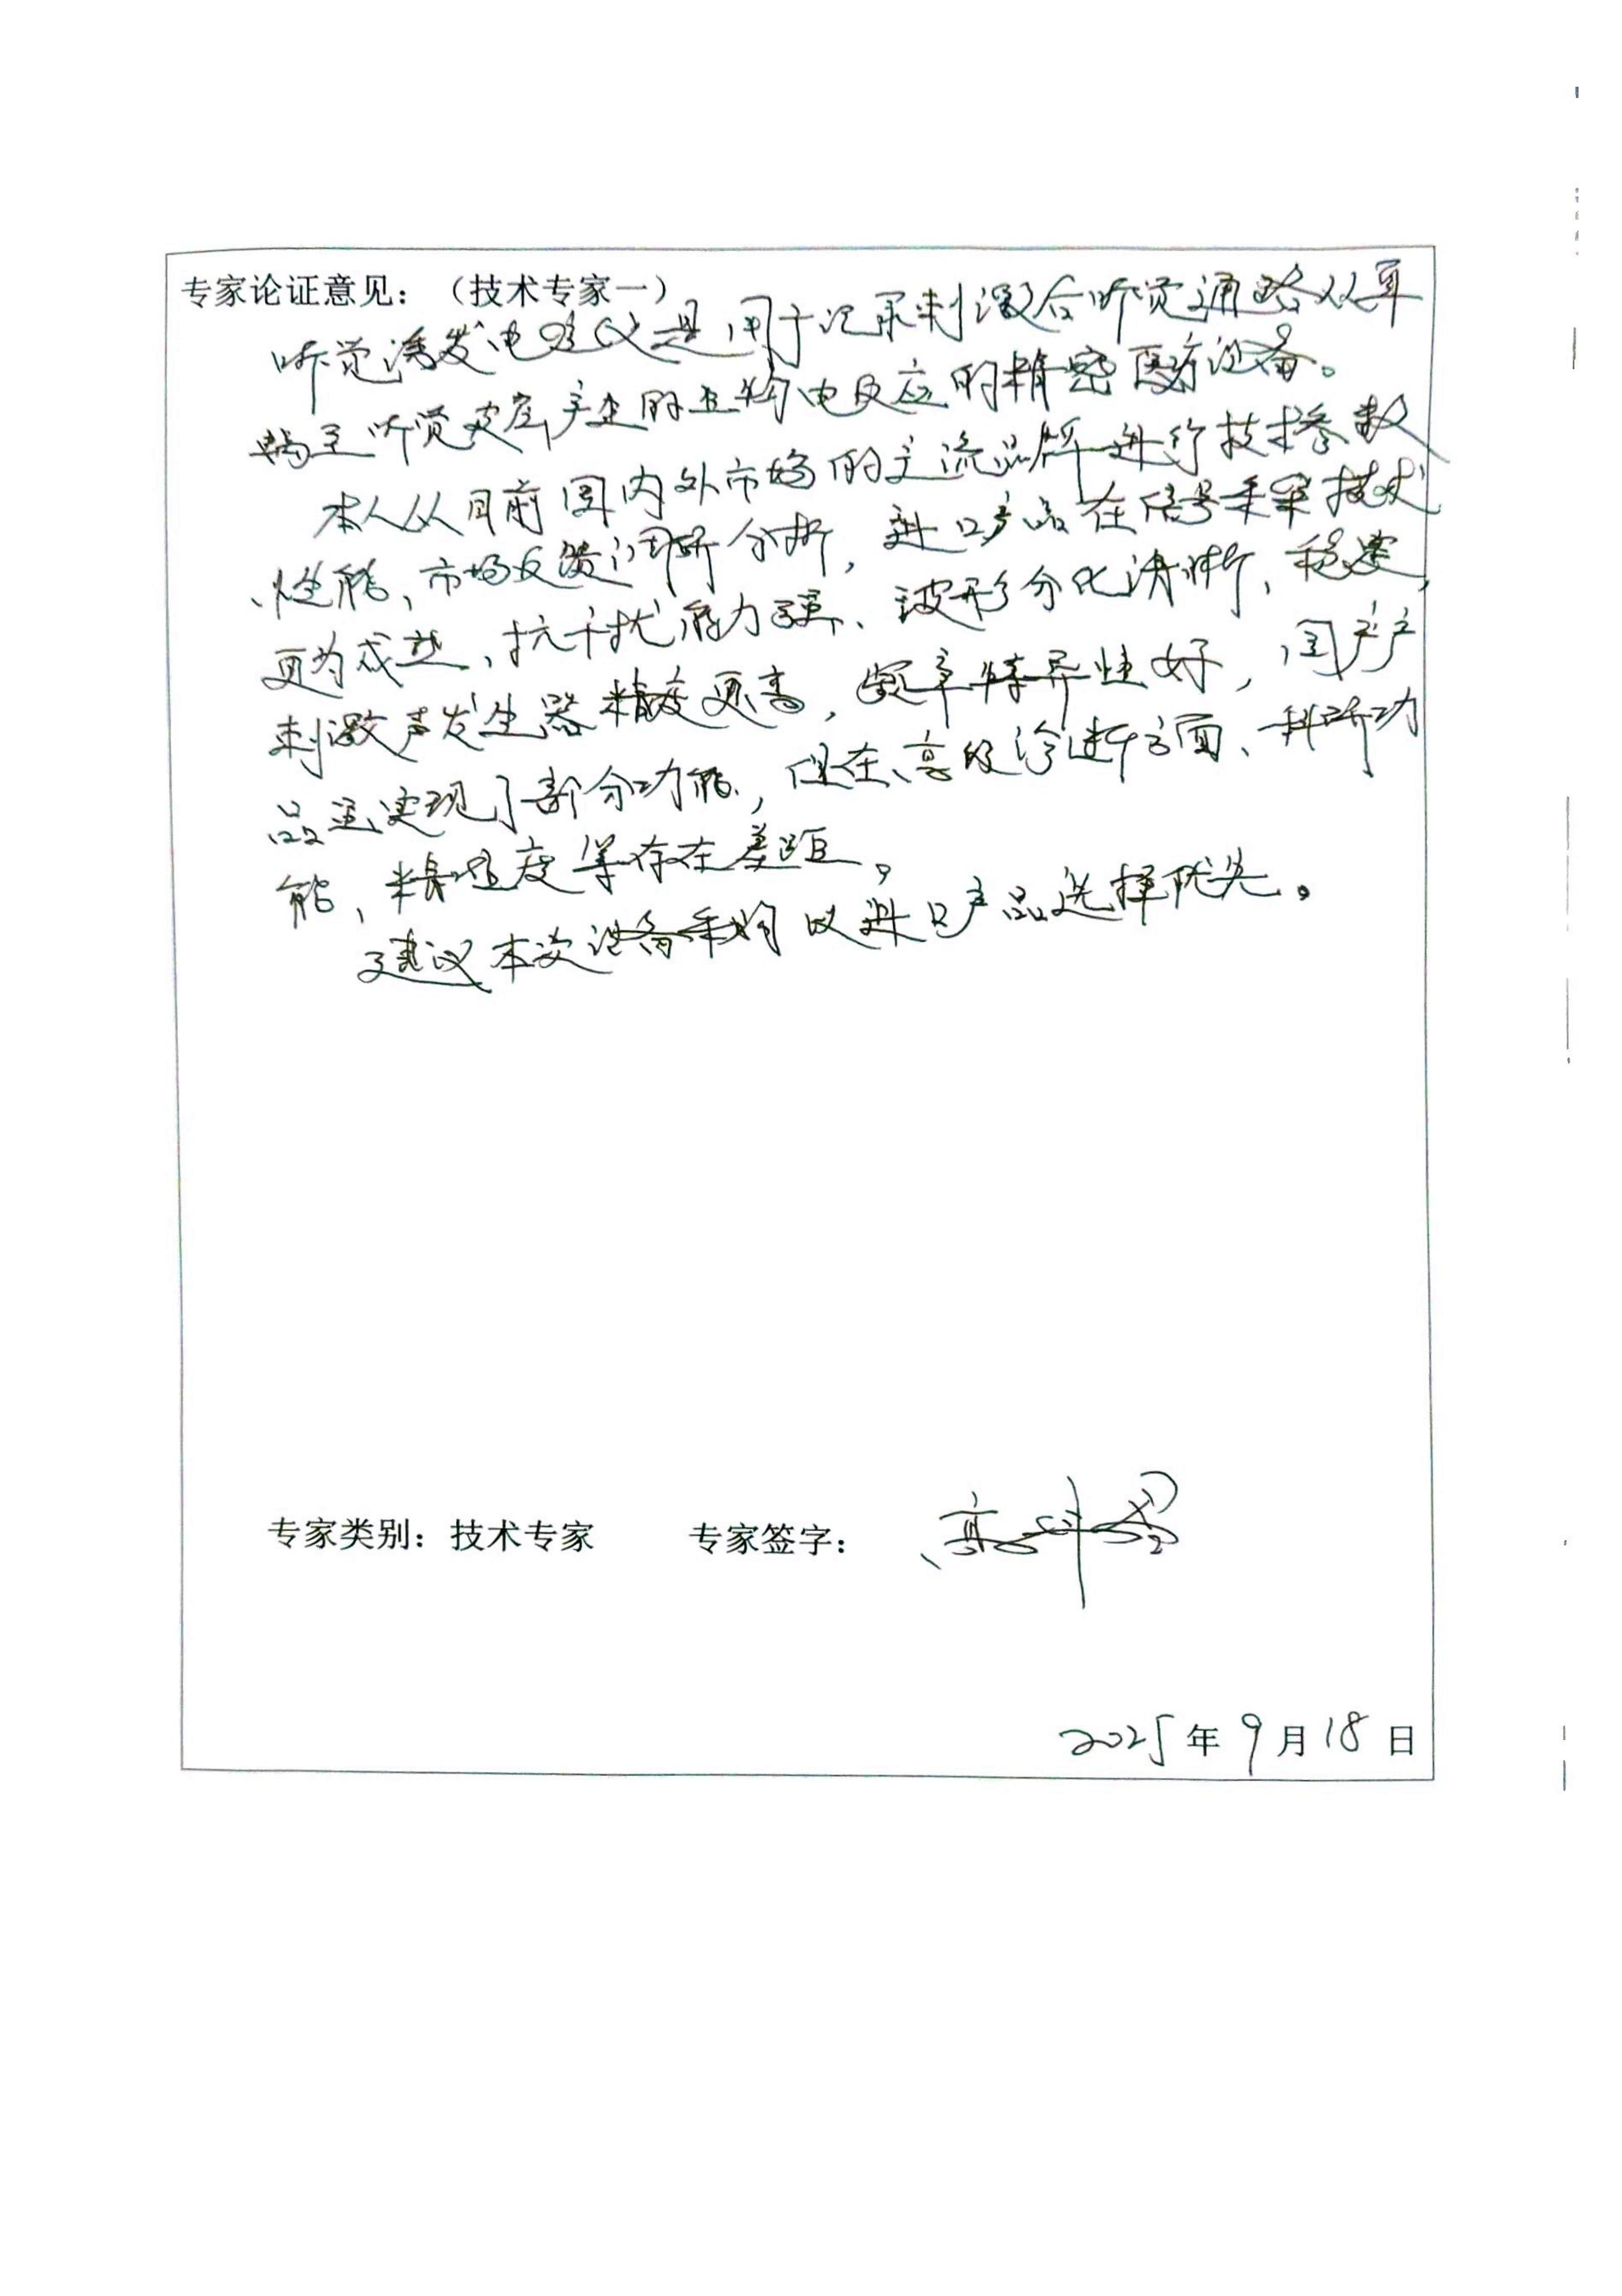 专家论证意见：（技术专家一）
听觉诱发电位仪是用于记录刺激后听觉通路从耳
蜗至听觉皮层产生的生物电反应的精密医疗设备。
本人从目前国内外市场的主流品牌进行技术参数
、性能、市场反馈调研分析，进口产品在信号采集技术
更为成熟，抗干扰能力强、波形分化清晰、稳定，
刺激声发生器精度更高，频率特异性好，国产产
品虽实现了部分功能，但在高级诊断方面、科研功
能、精准度等存在差距。
建议本次设备采购以进口产品选择优先。
专家类别：技术专家 专家签字：
2025年9月18日